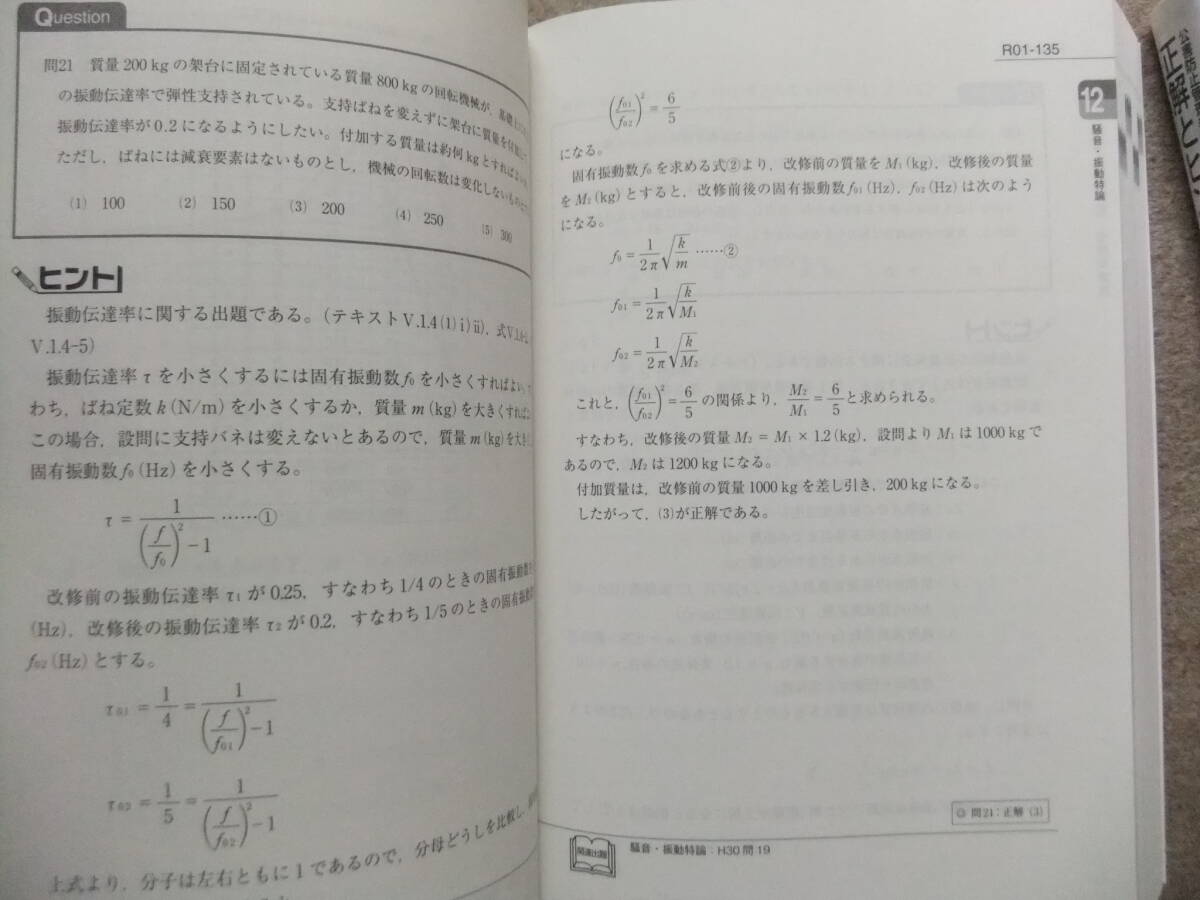 Question
問21 質量200kgの架台に固定されている質量800kgの回転機械が，基礎上に
の振動伝達率で弾性支持されている。支持ばねを変えずに架台に質量を付加して
振動伝達率が0.2になるようにしたい。付加する質量は約何kgとすればよいか
ただし，ばねには減衰要素はないものとし，機械の回転数は変化しないものと
(1) 100 (2) 150 (3) 200 (4) 250 (5) 300
ヒント
振動伝達率に関する出題である。(テキストV.1.4(1)ⅰ)ⅱ)，式V.1.4-
V.1.4-5)
振動伝達率τを小さくするには固有振動数f₀を小さくすればよい。
わち，ばね定数k(N/m)を小さくするか，質量m(kg)を大きくすれば
この場合，設問に支持バネは変えないとあるので，質量m(kg)を大き
固有振動数f₀(Hz)を小さくする。
τ = 1/((f/f₀)²－1) ……①
改修前の振動伝達率τ₁が0.25，すなわち1/4のときの固有振動数
(Hz)，改修後の振動伝達率τ₂が0.2，すなわち1/5のときの固有振動数
f₀₂(Hz)とする。
τ₀₁ = 1/4 = 1/((f/f₀₁)²－1)
τ₀₂ = 1/5 = 1/((f/f₀₂)²－1)
上式より，分子は左右ともに1であるので，分母どうしを比較し，
R01-135
12
騒音・振動特論
(f₀₁/f₀₂)² = 6/5
になる。
固有振動数f₀を求める式②より，改修前の質量をM₁(kg)，改修後の質量
をM₂(kg)とすると，改修前後の固有振動数f₀₁(Hz)，f₀₂(Hz)は次のよう
になる。
f₀ = 1/2π √(k/m) ……②
f₀₁ = 1/2π √(k/M₁)
f₀₂ = 1/2π √(k/M₂)
これと，(f₀₁/f₀₂)² = 6/5 の関係より，M₂/M₁ = 6/5 と求められる。
すなわち，改修後の質量M₂ = M₁ × 1.2(kg)，設問よりM₁は1000kgで
あるので，M₂は1200kgになる。
付加質量は，改修前の質量1000kgを差し引き，200kgになる。
したがって，(3)が正解である。
◎ 問21：正解 (3)
関連出題
騒音・振動特論：H30問19
公害防止
正解と